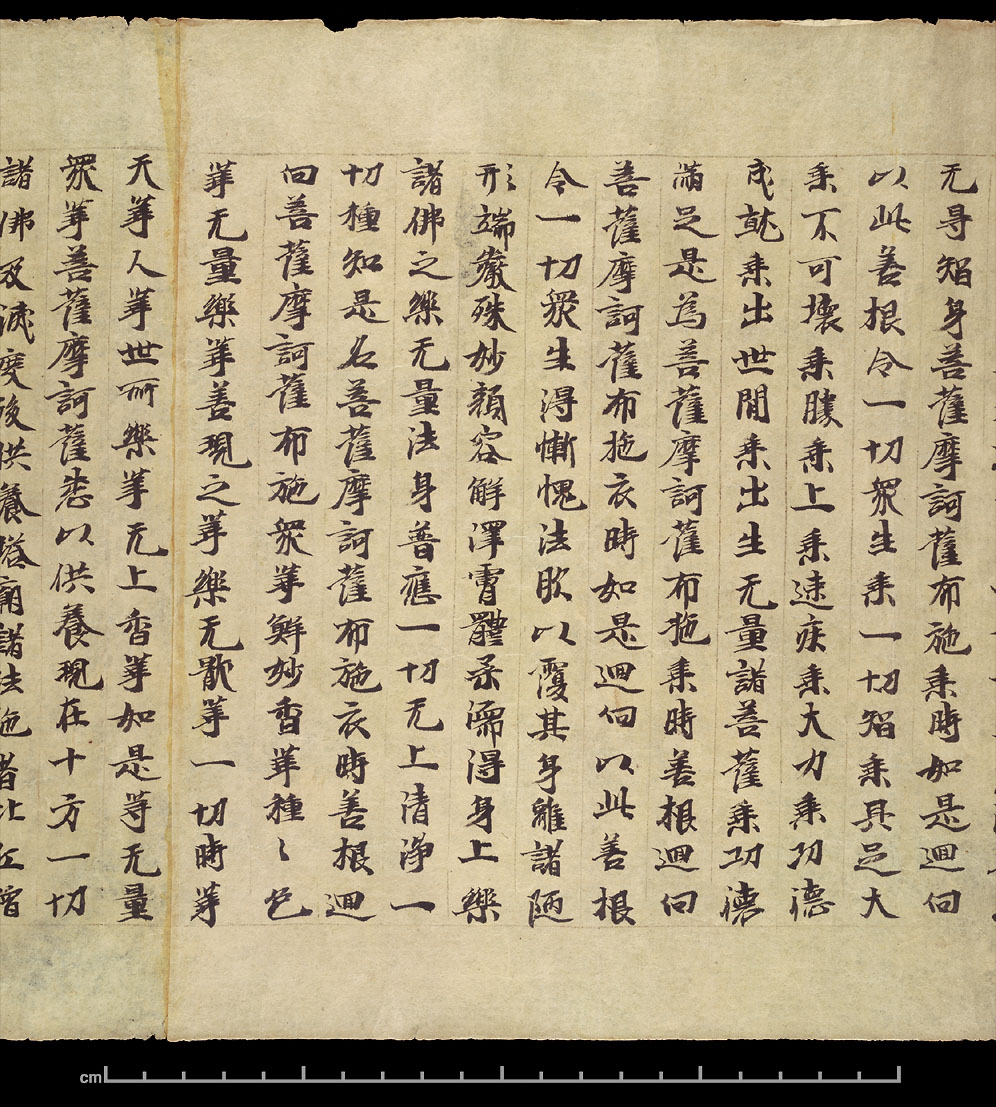 无㝵智身菩薩摩訶薩布施乘時如是迴向
以此善根令一切眾生乘一切智乘具足大
乘不可壞乘勝乘上乘速疾乘大力乘功德
成就乘出世間乘出生无量諸菩薩乘功德
滿足是為菩薩摩訶薩布施乘時善根迴向
菩薩摩訶薩布施衣時如是迴向以此善根
令一切眾生得慚愧法服以覆其身離諸陋
形端嚴殊妙顏容鮮澤膚體柔濡得身上樂
諸佛之樂无量法身普應一切无上清淨一
切種知是名菩薩摩訶薩布施衣時善根迴
向菩薩摩訶薩布施眾華鮮妙香華種〻色
華无量樂華善現之華樂无猒華一切時華
天華人華世所樂華无上香華如是等无量
眾華菩薩摩訶薩悉以供養現在十方一切
諸佛及滅度後供養塔廟諸法施者比丘僧
cm